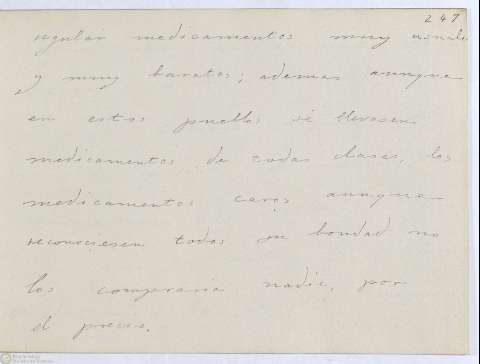 247
regular medicamentos muy usuales
y muy baratos; ademas aunque
en estos pueblos se llevasen
medicamentos de todas clases, los
medicamentos caros aunque
reconociesen todos su bondad no
los compraria nadie, por
el precio.